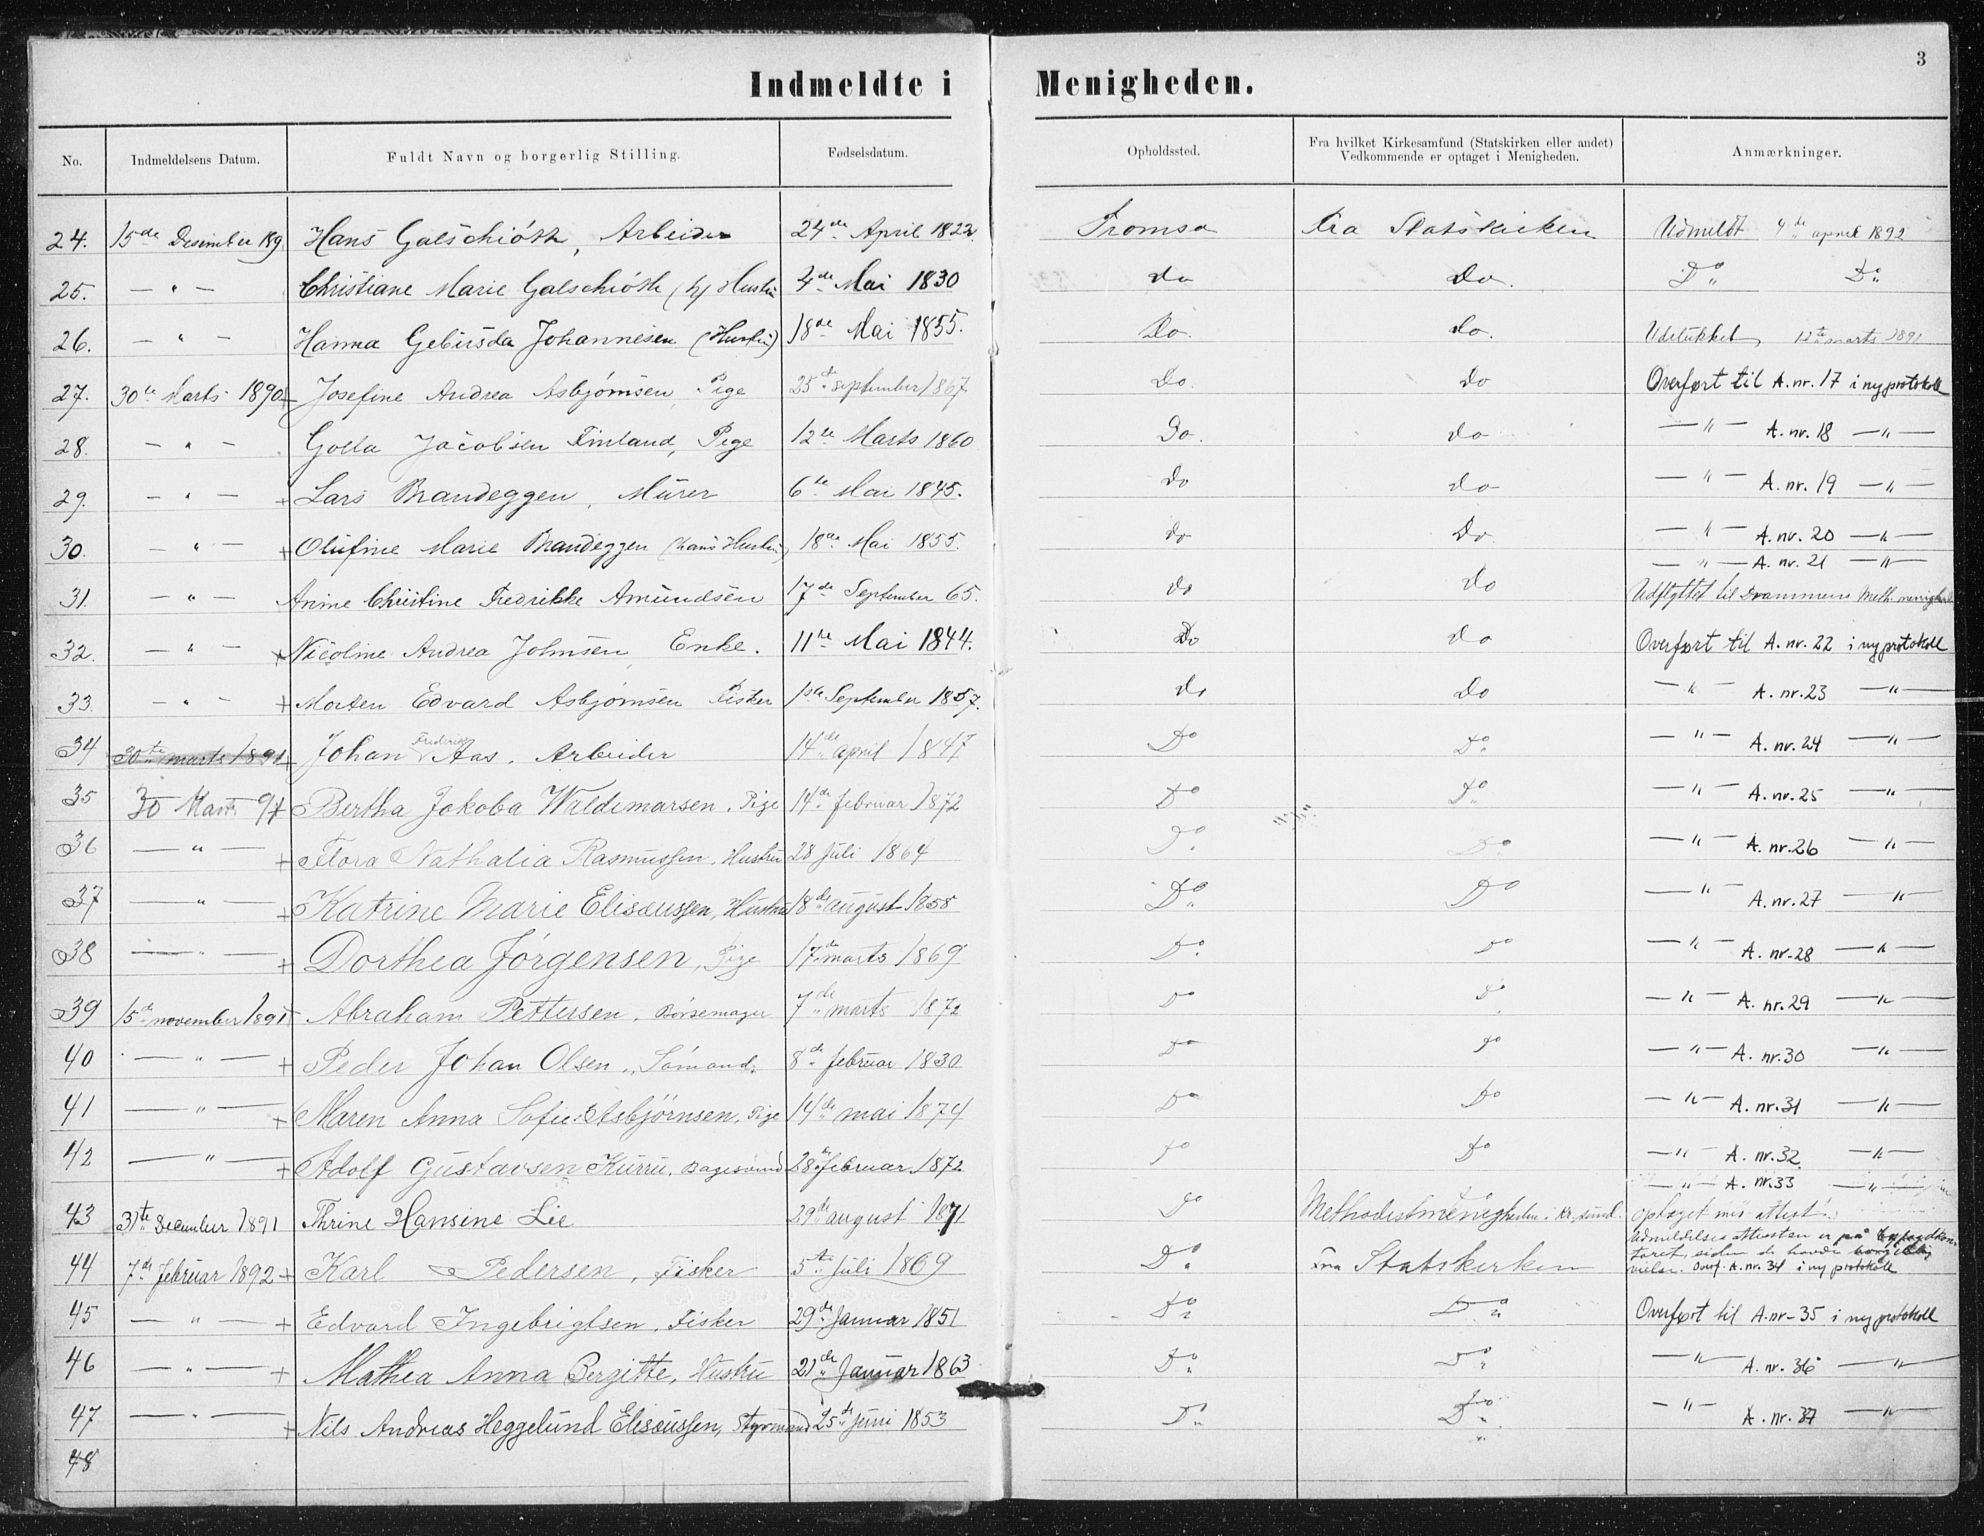 3
Indmeldte i Menigheden.
No. Indmeldelsens Datum. Fuldt Navn og borgerlig Stilling. Fødselsdatum. Opholdssted. Fra hvilket Kirkesamfund (Statskirken eller andet) Vedkommende er optaget i Menigheden. Anmærkninger.
24. 15de Desember 189 Hans Galschiøth, Arbeider 24de April 1822 Tromsø Fra Statskirken Udmeldt 4de april 1892
25. — " — Christiane Marie Galschiøth (h) Hustru 4de Mai 1830 do Do. Do Do
26. — " — Hanna Johannesen (Hustru) 18de Mai 1855. Do. do. Udelukket 12te marts 1891
27. 30te Marts 1890 + Josefine Andrea Asbjørnsen, Pige 25de september 1867. Do. do Overført til A.nr. 17 i ny protokoll
28. — " — Golla Jacobsen Finland, Pige 12te Marts 1860 Do. do — " — A. nr. 18 — " —
29. — " — + Lars Brandeggen, Murer 6te Mai 1845. do do — " — A. nr. 19 — " —
30. — " — + Olufine Marie Brandeggen (hans Hustru) 18de Mai 1855. do Do. — " — A. nr. 20 — " —
— " — A. nr. 21 — " —
31. — " — Anine Christine Fredrikke Amundsen 17de September 65. do do Udflyttet til Drammens Meth. menighed
32. — " — + Nicoline Andrea Johnsen Enke. 11te Mai 1844. Do do Overført til A. nr. 22 i ny protokoll
33. — " — + Morten Edvard Asbjørnsen Fisker 1ste September 1857. do Do — " — A. nr. 23 — " —
34 30te marts 1891 + Johan Frederik Aas, Arbeider 14de april 1847 Do Do — " — A. nr. 24 — " —
35 30 Marts 91 + Bertha Jakoba Waldemarsen, Pige 14de februar 1872 Do Do — " — A. nr. 25 — " —
36 — " — + Flora Nathalia Rasmussen, Hustru 28 juli 1864 Do. Do. — " — A. nr. 26 — " —
37 — " — + Katrine Marie Elisæussen, Hustru 18de august 1858 Do Do — " — A. nr. 27 — " —
38 — " — + Dorthea Jörgensen, Pige 17de marts 1869 Do. Do — " — A. nr. 28 — " —
39 15de november 1891 + Abraham Pettersen, Børsemager 7de marts 1872 Do Do — " — A. nr. 29 — " —
40 — " — + Peder Johan Olsen, Sömand. 8de februar 1830 Do Do — " — A. nr. 30 — " —
41 — " — + Maren Anna Sofie Asbjörnsen, Pige 14de mai 1874 Do Do — " — A. nr. 31 — " —
42 — " — + Adolf Gustavsen Kurru, Bagersvend 28de februar 1872 Do Do — " — A. nr. 32 — " —
— " — A. nr. 33 — " —
43 31te December 1891 Thrine Hansine Lie 29de august 1871 Do Methodistmenigheden i Kr.sund optaget med attest.
Udmeldelses attesten er på
siden de havde
44 7de februar 1892 + Karl Pedersen, Fisker 5te Juli 1869 Do Fra Statskirken Overf. A. nr. 34 i ny protokoll
45 — " — + Edvard Ingebrigtsen, Fisker 29de Januar 1851 Do Do Overført til A. nr. 35 i ny protokoll
46 — " — + Mathea Anna Bergitte, Hustru 21de Januar 1863 Do Do — " — A. nr. 36 — " —
47 — " — + Nils Andreas Heggelund Elisæussen, Styrmand 25de juni 1853 Do Do — " — A. nr. 37 — " —
48